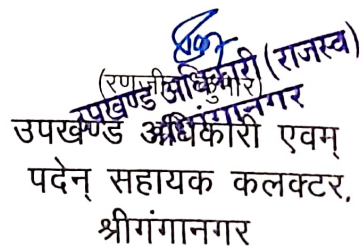 (रणजीत कुमार)
उपखण्ड अधिकारी (राजस्व)
श्रीगंगानगर
उपखण्ड अधिकारी एवम्
पदेन् सहायक कलक्टर,
श्रीगंगानगर